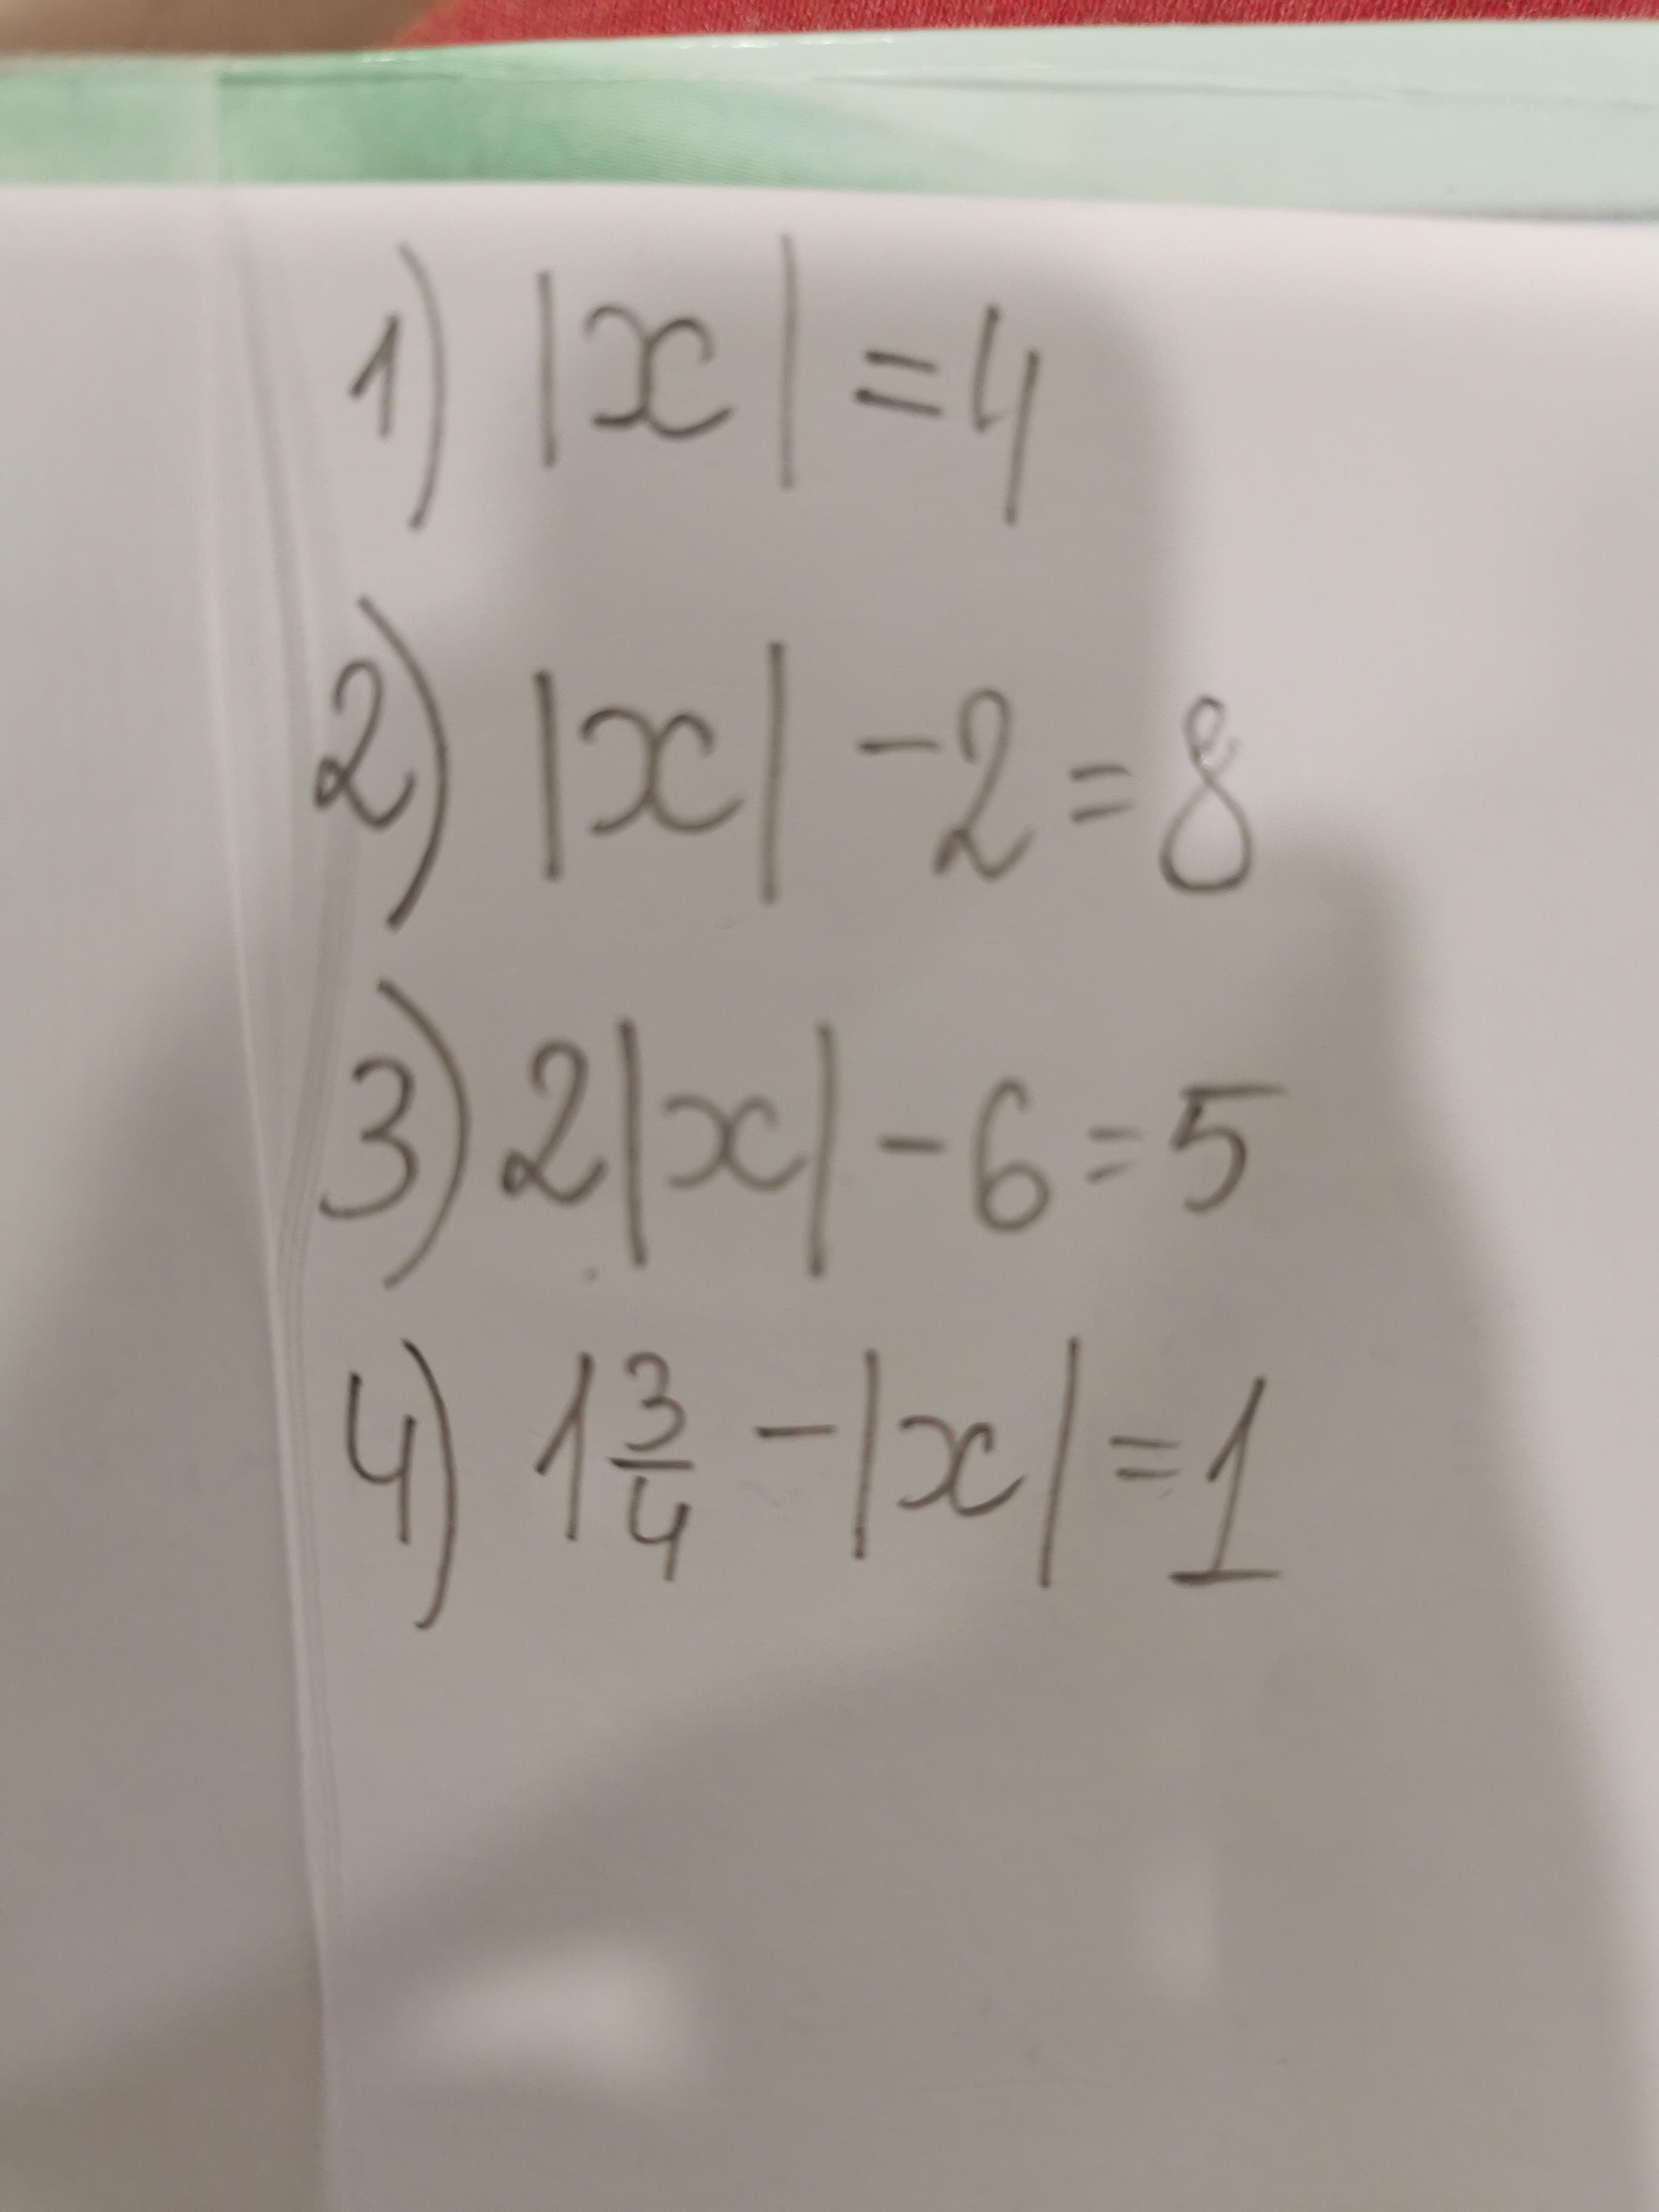 1) |x| = 4
2) |x| - 2 = 8
3) 2|x| - 6 = 5
4) 1 3/4 - |x| = 1